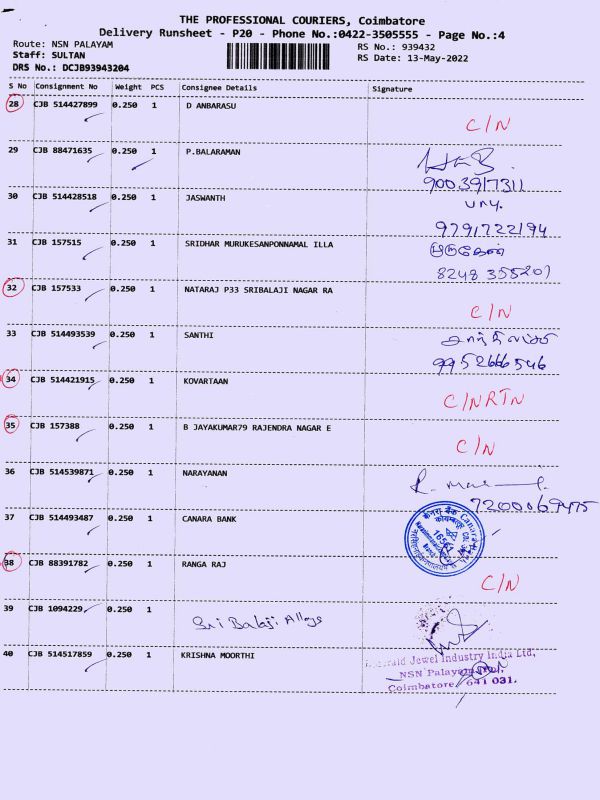 THE PROFESSIONAL COURIERS, Coimbatore
Delivery Runsheet - P20 - Phone No.:0422-3505555 - Page No.:4
Route: NSN PALAYAM
RS No.: 939432
Staff: SULTAN
RS Date: 13-May-2022
DRS No.: DCJB93943204
S No Consignment No Weight PCS Consignee Details Signature
28 CJB 514427899 0.250 1 D ANBARASU
C/N
29 CJB 88471635 0.250 1 P.BALARAMAN
9003917311
30 CJB 514428518 0.250 1 JASWANTH
9791722194
31 CJB 157515 0.250 1 SRIDHAR MURUKESANPONNAMAL ILLA
முருகேசன்
8248355201
32 CJB 157533 0.250 1 NATARAJ P33 SRIBALAJI NAGAR RA
C/N
33 CJB 514493539 0.250 1 SANTHI
9952666546
34 CJB 514421915 0.250 1 KOVARTAAN
C/N RTN
35 CJB 157388 0.250 1 B JAYAKUMAR79 RAJENDRA NAGAR E
C/N
36 CJB 514539871 0.250 1 NARAYANAN
7200069475
37 CJB 514493487 0.250 1 CANARA BANK
केनरा बैंक Canara
38 CJB 88391782 0.250 1 RANGA RAJ
C/N
39 CJB 1094229 0.250 1
Sri Balaji Alloys
40 CJB 514517859 0.250 1 KRISHNA MOORTHI
Jewel Industry India Ltd,
NSN Palayam
Coimbatore 641 031.